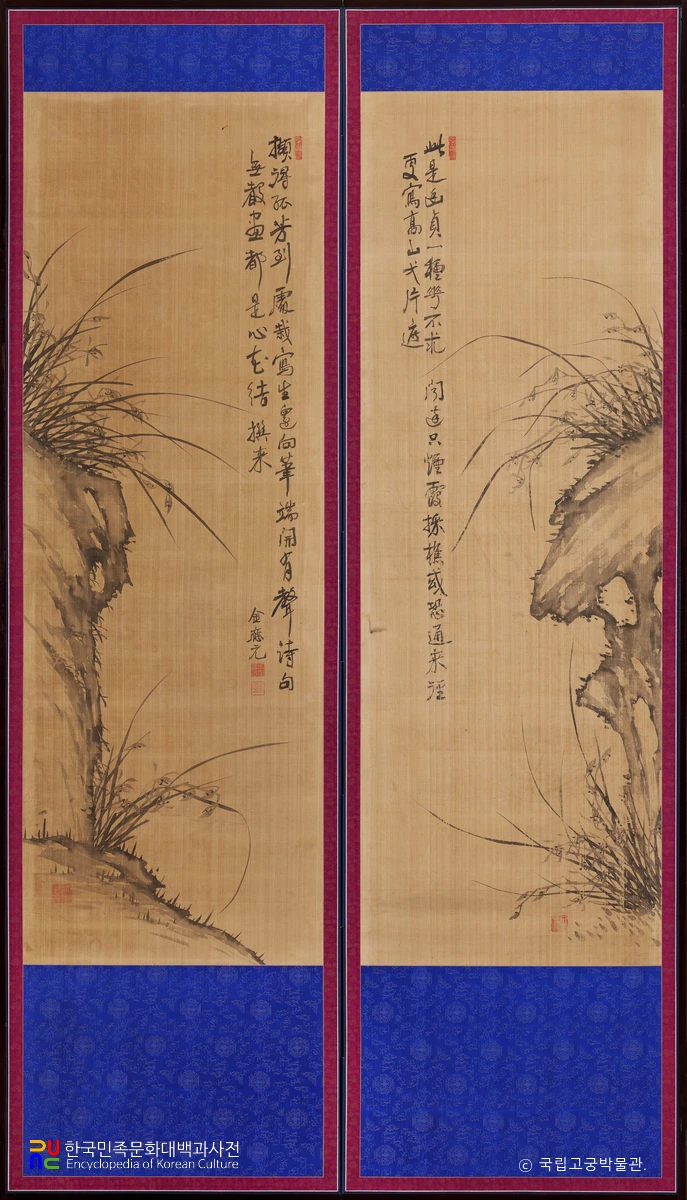 此是幽貞一種華不求聞達只煙霞採樵或恐通來徑
更寫高山弌片遮
擷得孤芳到處栽寫生還向筆端開有聲詩句
無聲畫都是心花結撰来
金應元
한국민족문화대백과사전
Encyclopedia of Korean Culture
© 국립고궁박물관.